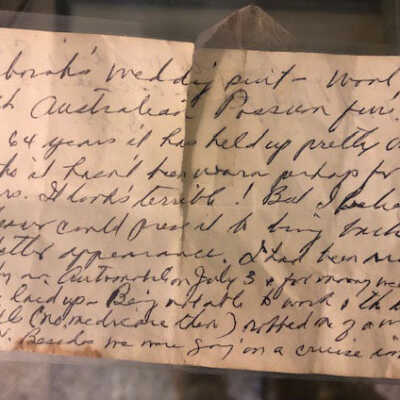 borah's wedding suit - wool
Australian Possum fur.
64 years it has held up pretty
it hasn't been worn perhaps for
rs. It looks terrible! But I
could press it to bring back
appearance. I had been
Automobile on July 3 & for many
laid up - Being unable to work & the
(no medicare then) robbed me of a
Besides we were going on a cruise